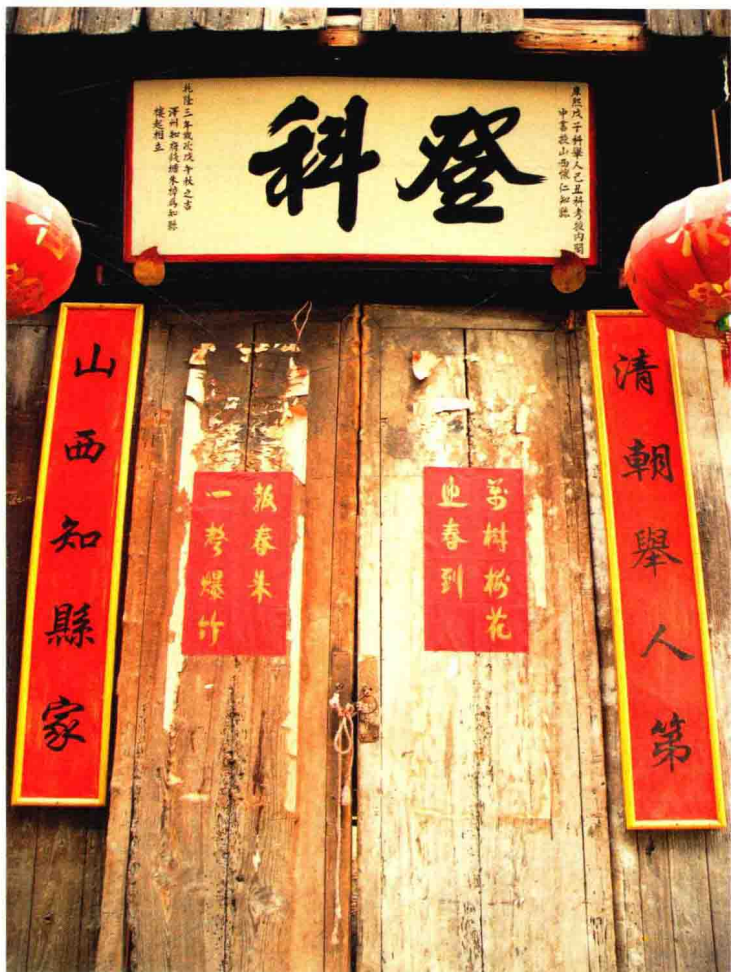 康熙戊子科舉人己丑科考授內閣
中書授山西懷仁知縣
登科
乾隆三年歲次戊午秋之吉
澤州知府錢塘朱樟爲知縣
樓起相立
清朝舉人第
萬樹梅花
迎春到
報春来
一聲爆竹
山西知縣家